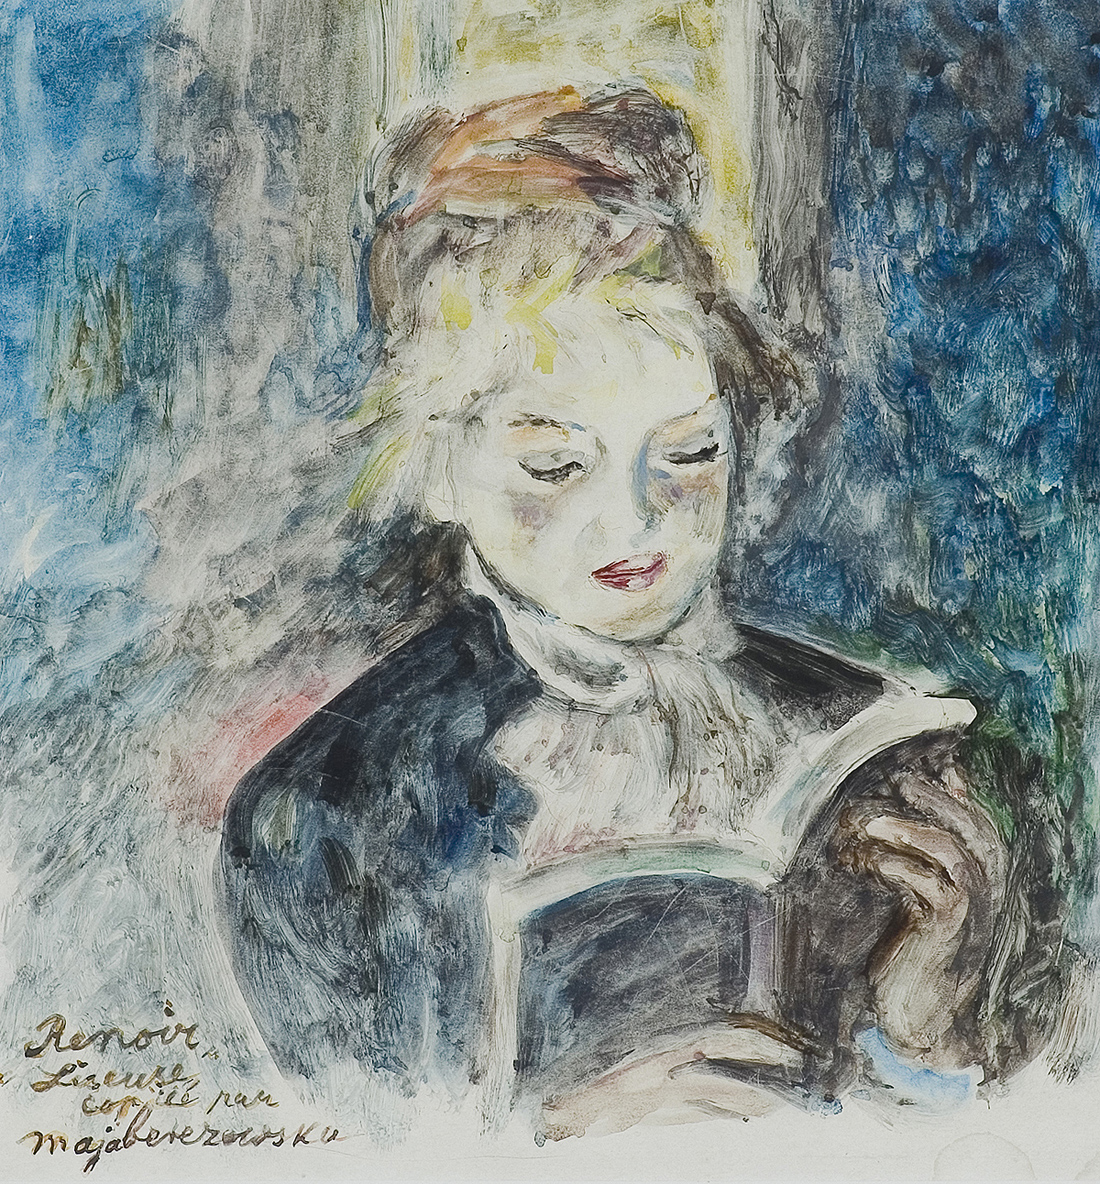 Renoir,
Liseuse,
copié par
majaberezowska